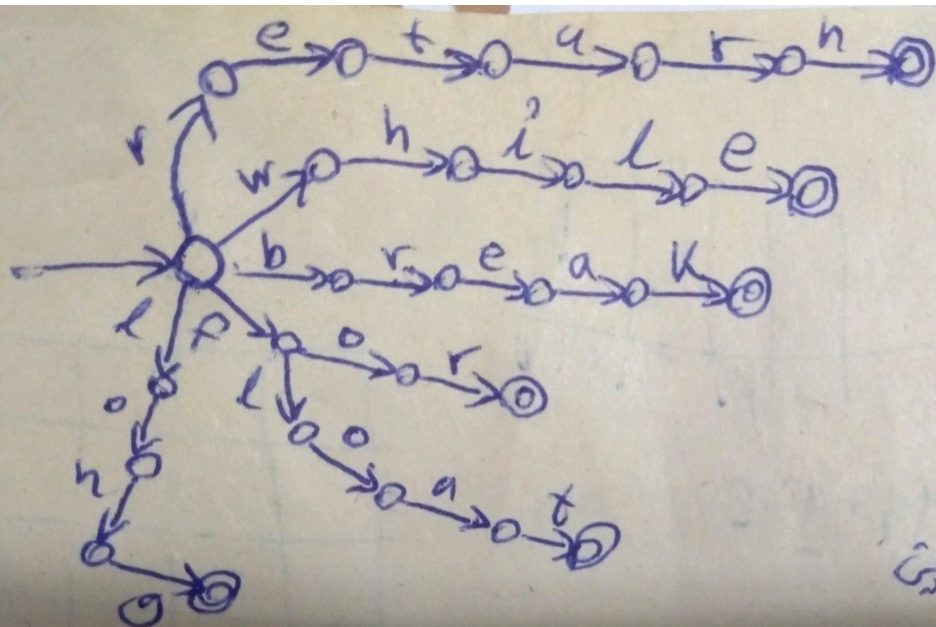 r e t u r n
w h i l e
b r e a k
f o r
l o a t
l o n g